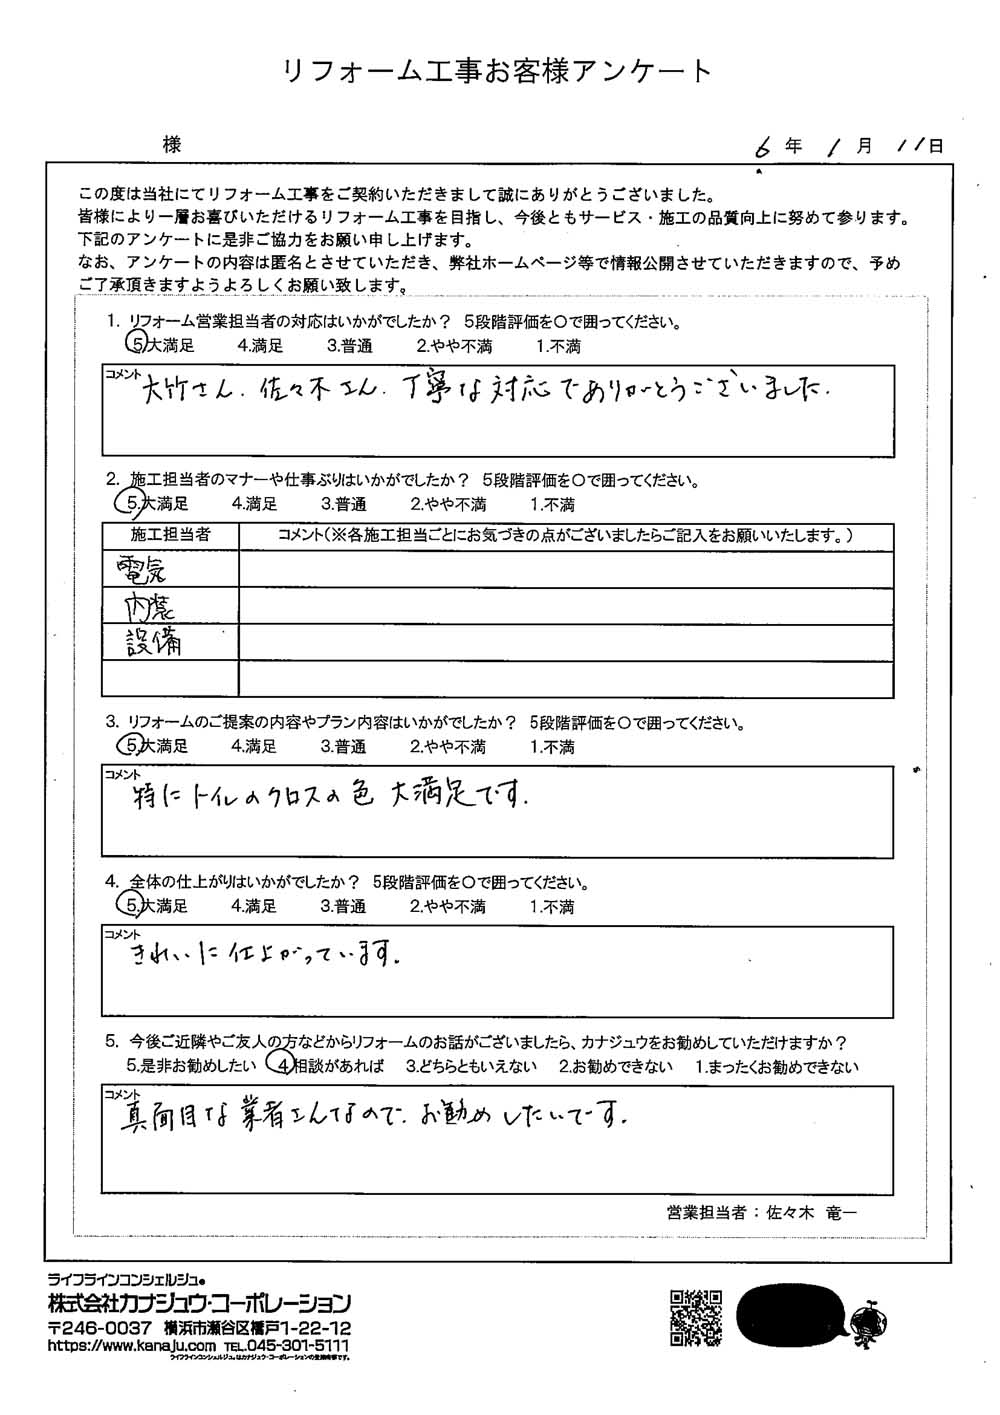 リフォーム工事お客様アンケート
様
6年 1月 11日
この度は当社にてリフォーム工事をご契約いただきまして誠にありがとうございました。
皆様により一層お喜びいただけるリフォーム工事を目指し、今後ともサービス・施工の品質向上に努めて参ります。
下記のアンケートに是非ご協力をお願い申し上げます。
なお、アンケートの内容は匿名とさせていただき、弊社ホームページ等で情報公開させていただきますので、予め
ご了承頂きますようよろしくお願い致します。
1. リフォーム営業担当者の対応はいかがでしたか？ 5段階評価を〇で囲ってください。
5.大満足 4.満足 3.普通 2.やや不満 1.不満
コメント
大竹さん、佐々木さん、丁寧な対応でありがとうございました。
2. 施工担当者のマナーや仕事ぶりはいかがでしたか？ 5段階評価を〇で囲ってください。
5.大満足 4.満足 3.普通 2.やや不満 1.不満
施工担当者 コメント(※各施工担当ごとにお気づきの点がございましたらご記入をお願いいたします。)
電気
内装
設備
3. リフォームのご提案の内容やプラン内容はいかがでしたか？ 5段階評価を〇で囲ってください。
5.大満足 4.満足 3.普通 2.やや不満 1.不満
コメント
特にトイレのクロスの色 大満足です。
4. 全体の仕上がりはいかがでしたか？ 5段階評価を〇で囲ってください。
5.大満足 4.満足 3.普通 2.やや不満 1.不満
コメント
きれいに仕上がっています。
5. 今後ご近隣やご友人の方などからリフォームのお話がございましたら、カナジュウをお勧めしていただけますか？
5.是非お勧めしたい 4.相談があれば 3.どちらともいえない 2.お勧めできない 1.まったくお勧めできない
コメント
真面目な業者さんなので、お勧めしたいです。
営業担当者：佐々木 竜一
ライフラインコンシェルジュ®
株式会社カナジュウ・コーポレーション
〒246-0037 横浜市瀬谷区橋戸1-22-12
https://www.kanaju.com TEL.045-301-5111
ライフラインコンシェルジュ®はカナジュウ・コーポレーションの登録商標です。